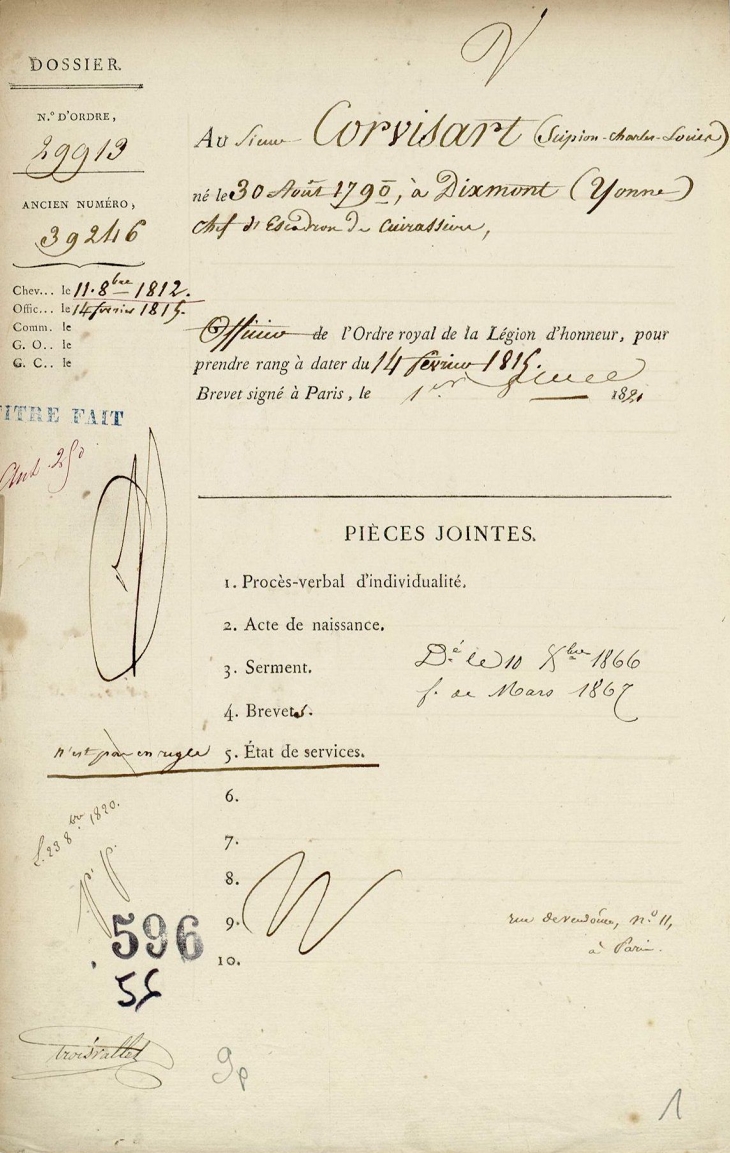 DOSSIER.
N.º D'ORDRE,
29913
ANCIEN NUMÉRO,
39246
Chev... le 11. 8bre 1812.
Offic... le 14 fevrier 1815.
Comm. le
G. O.. le
G. C.. le
TITRE FAIT
V
Au Sieur Corvisart (Scipion-Charles-Louis)
né le 30 Août 1790, à Dixmont (Yonne)
chef d'Escadron de Cuirassiers,
Officier de l'Ordre royal de la Légion d'honneur, pour
prendre rang à dater du 14 fevrier 1815.
Brevet signé à Paris, le 1er 1821
PIÈCES JOINTES.
1. Procès-verbal d'individualité.
2. Acte de naissance.
3. Serment.
Dé. le 10 Xbre 1866
f. de Mars 1867
4. Brevets.
n'est pas en regle 5. État de services.
6.
7.
8.
9.
10.
L. 23 8bre 1820.
p. p.
596
56
rue de vendôme, nº 11,
à Paris.
troisvallets
9p
1